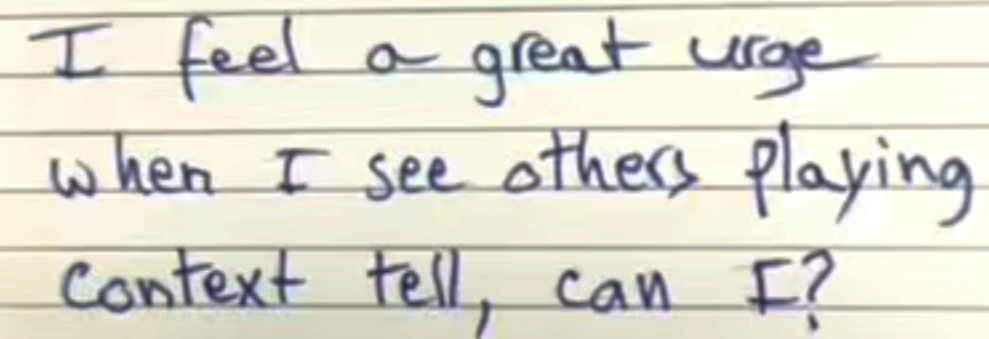 I feel a great urge
when I see others playing
Context tell, can I?